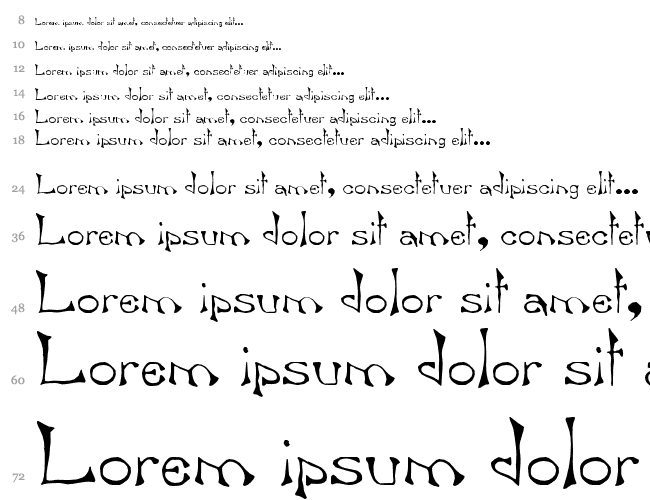 8 Lorem ipsum dolor sit amet, consectetuer adipiscing elit...
10 Lorem ipsum dolor sit amet, consectetuer adipiscing elit...
12 Lorem ipsum dolor sit amet, consectetuer adipiscing elit...
14 Lorem ipsum dolor sit amet, consectetuer adipiscing elit...
16 Lorem ipsum dolor sit amet, consectetuer adipiscing elit...
18 Lorem ipsum dolor sit amet, consectetuer adipiscing elit...
24 Lorem ipsum dolor sit amet, consectetuer adipiscing elit...
36 Lorem ipsum dolor sit amet, consectetu
48 Lorem ipsum dolor sit amet,
60 Lorem ipsum dolor sit a
72 Lorem ipsum dolor